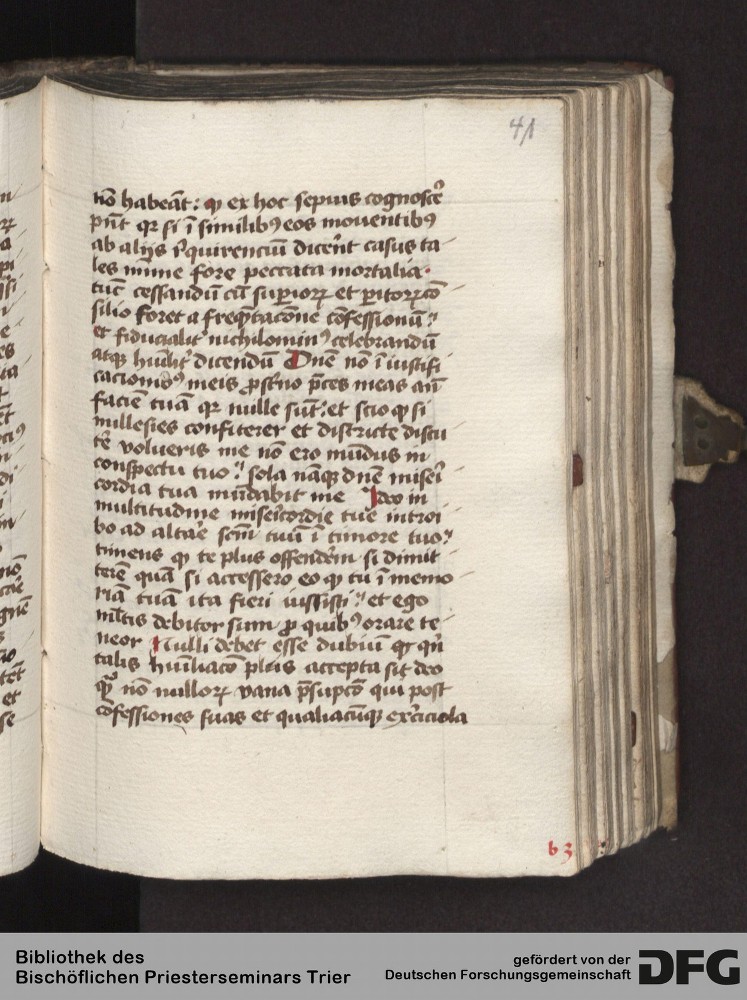 41
nō habeāt: qꝫ ex hoc sepius cognoscē
pn̄t qꝛ si ī similibꝰ eos mouentibꝰ
ab alijs īquirenciū dicēnt casus ta
les mīme fore peccata mortalia.
tūc cessandū cū suꝑioꝝ et ꝑitoꝝ cō
silio foret a freq̄tacōne cōfessionū:
et fiducialit᷑ nichilominꝰ celebrandū
atqꝫ hūilit᷑ dicendū Dn̄e nō ī iustifi
cacionibꝰ meis ꝓst̄no p̄ces meas an̄
faciē tuā qꝛ nulle sūt: et scio qꝫ si
millesies confiterer et districte discu
tē volueris me nō ero mūdus in
conspectu tuo: sola nāqꝫ dn̄e miseri
cordia tua mūdabit me Ideo in
multitudine misericordie tue introi
bo ad altare scm̄ tuū ī timore tuo:
timens qꝫ te plus offenderem si dimit
terē quā si accessero eo qꝫ tu ī memo
riā tuā ita fieri iussisti: et ego
ml̄tis debitor sum ꝓ quibꝰ orare te
neor Nulli debet esse dubiū qꝫ qn̄
talis hūiliacō plus accepta sit deo
qꝫ̄ nō nulloꝝ vana p̄supcō qui post
cōfessiones suas et qualiacūqꝫ exc̄iciola
b 3
Bibliothek des
Bischöflichen Priesterseminars Trier
gefördert von der
Deutschen Forschungsgemeinschaft
DFG